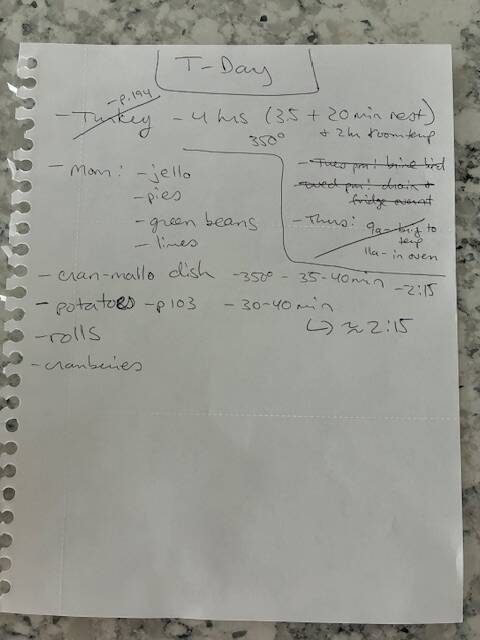 T-Day
- p.194
- Turkey - 4 hrs (3.5 + 20 min rest)
350° + 2 hr room temp
- Tues pm: brine bird
- Wed pm: drain +
fridge overnt
- Thurs: 9a - brig to
temp
11a - in oven
- Mom: - jello
- pies
- green beans
- limes
- cran-mallo dish - 350° - 35-40 min - 2:15
- potatoes - p103 - 30-40 min
↳ ≈ 2:15
- rolls
- cranberries